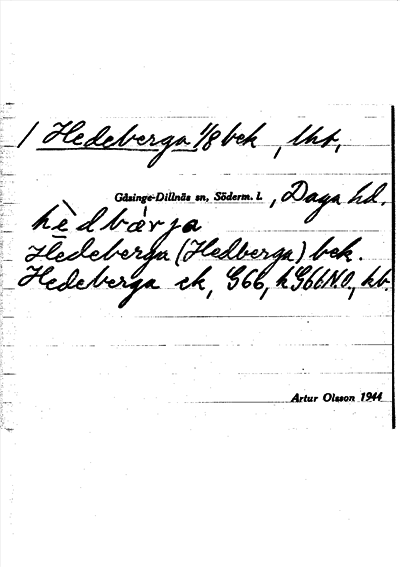 / Hedeberga 1/8 bek, lht,
Gåsinge-Dillnäs sn, Söderm. l., Daga hd.
hèdbærja
Hedeberga (Hedberga) bek.
Hedeberga ek, G66, hG66N.O., kb.
Artur Olsson 1944